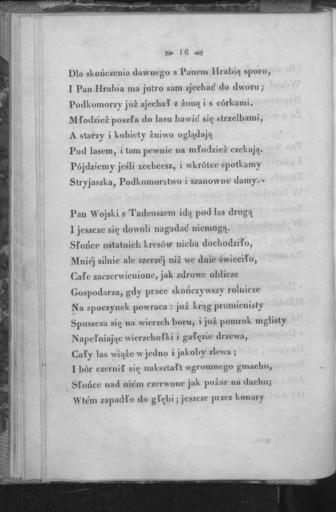 16
Dla skończenia dawnego s Panem Hrabią sporu,
I Pan Hrabia ma jutro sam zjechać do dworu;
Podkomorzy już zjechał z żoną i s córkami.
Młodzież poszła do lasu bawić się strzelbami,
A starzy i kobiety żniwo oglądają
Pod lasem, i tam pewnie na młodzież czekają.
Pójdziemy jeśli zechcesz, i wkrótce spotkamy
Stryjaszka, Podkomorstwo i szanowne damy.»
Pan Wojski s Tadeuszem idą pod las drogą
I jeszcze się dowoli nagadać niemogą.
Słońce ostatnich kresów nieba dochodziło,
Mniéj silnie ale szerzéj niż we dnie świeciło,
Całe zaczerwienione, jak zdrowe oblicze
Gospodarza, gdy prace skończywszy rolnicze
Na spoczynek powraca: już krąg promienisty
Spuszcza się na wierzch boru, i już pomrok mglisty
Napełniając wierzchołki i gałęzie drzewa,
Cały las wiąże w jedno i jakoby zlewa;
I bór czernił się nakształt ogromnego gmachu,
Słońce nad niém czerwone jak pożar na dachu;
Wtém zapadło do głębi; jeszcze przez konary